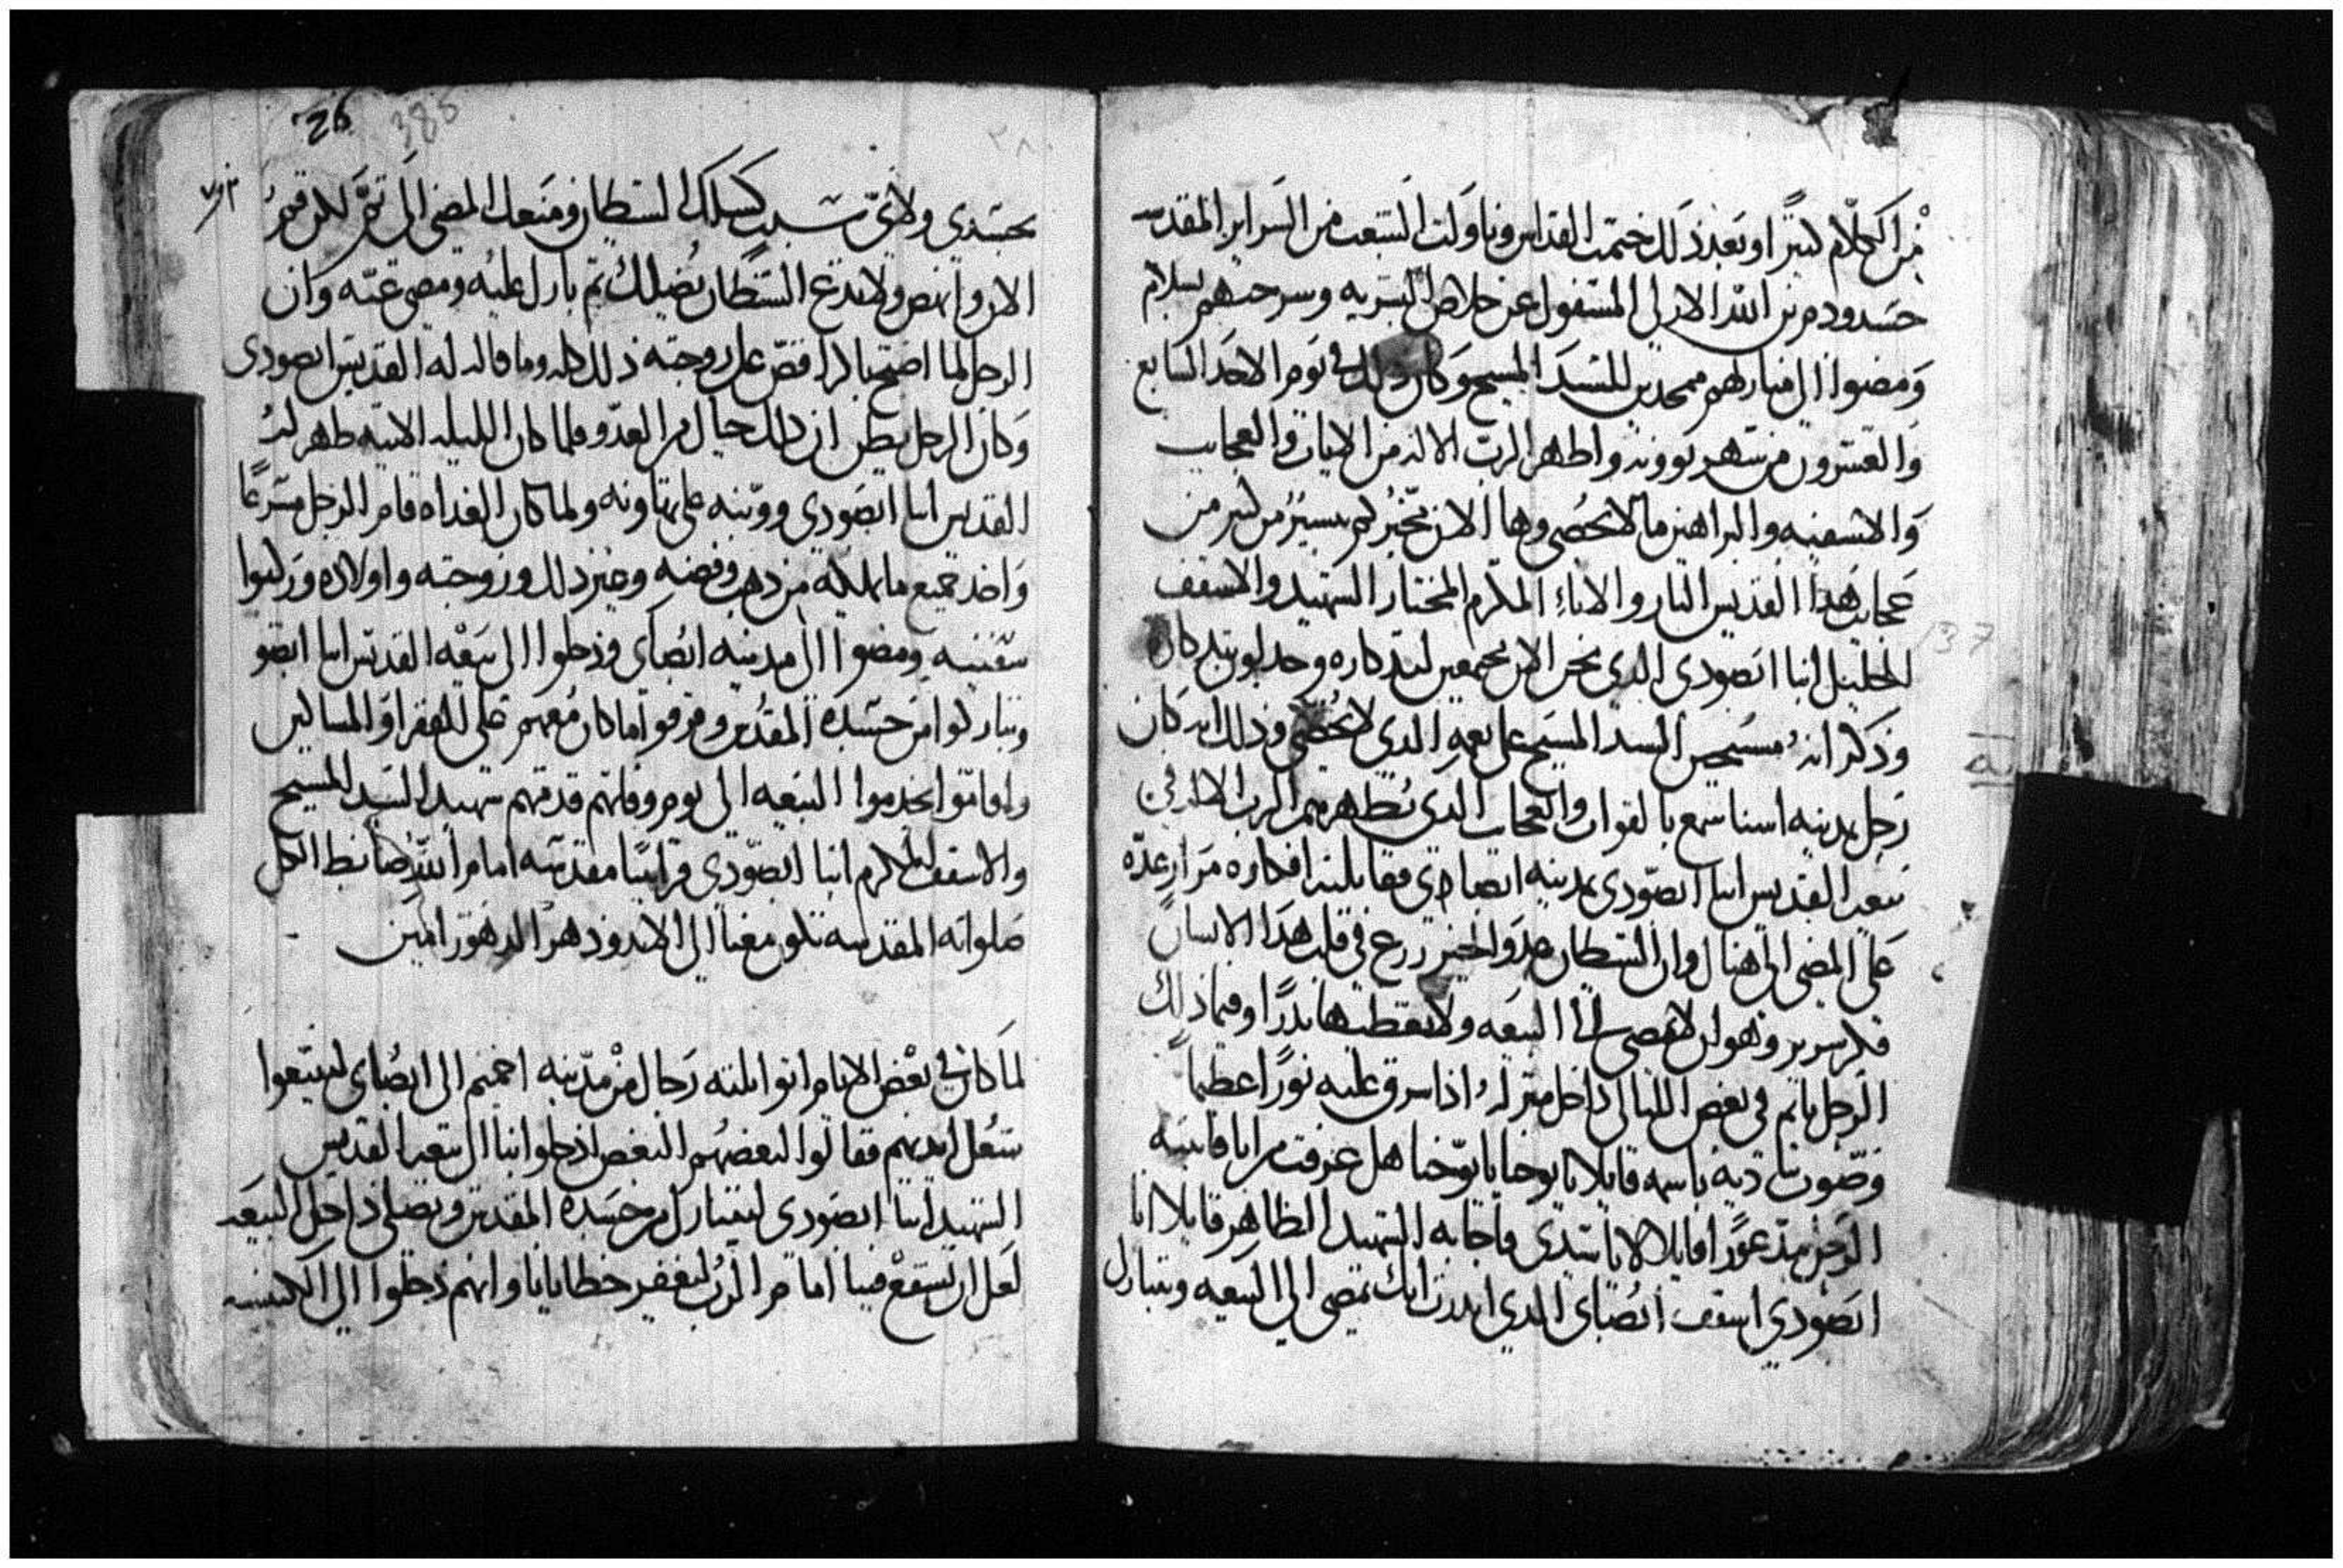 من الكلام كثيرًا وبعد ذلك ختمت القداس وناولت الشعب من السراير المقدسه
جسد ودم بن الله الازلي المسفوك عن خلاص البشريه وسرحتهم بسلام
ومضوا الي منازلهم ممجدين للسيد المسيح وكان ذلك في يوم الاحد السابع
والعشرون من شهر بوونه واظهر الرب الاله من الايات والعجايب
والاشفيه والبراهين ما لا تحصي وها الان نخبركم بيسير من كتير من
عجايب هذا القديس البار والاناء المكرم المختار الشهيد والاسقف
الجليل انبا ابصودي الذي نحن الان مجتمعين لتدكاره وحلول تدكار
وذكرانه مسبحين السيد المسيح علي نعمه الذي لا تحصي وذلك انه كان
رجل بمدينه اسنا سمع بالقوات والعجايب الذي تظهرهم الرب الاله في
بيعه القديس انبا ابصودي بمدينه ابصاي فقابلته افكاره مرار عده
علي المضي الي هناك وان الشيطان عدو الخير زرع في قلب هذا الانسان
فكر سرير وهو ان لا تمضي الي البيعه ولا تعطيها ندرًا وفيما ذلك
الرجل نايم في بعض الليالي داخل منزله اذا اسرق عليه نورًا عظيمًا
وصوت نادية باسمه قايلا يا يوحنا يا يوحنا هل عرفت من انا فانتبه
الرجل مدعورًا قايلا لا يا سيدي فاجابه الشهيد الظاهر قايلا انا
ابصودي اسقف ابصاي الذي اندرت انك تمضي الي البيعه وتتبارك
26
385
بجسدي ولاي سبب كسلك الشيطان ومنعك المضي الي تم لكن قم
الان وانهض ولا تدع الشيطان يضلك تم بارك عليه ومضي عنه وان
الرجل لما اصبح باكرا قص علي زوجته ذلك كله وما قاله له القديس ابصودي
وكان الرجل يظن ان ذلك خيال من العدو فلما كان الليله الاتيه ظهر له
القديس انبا ابصودي ووبخه علي تهاونه ولما كان الغداه قام الرجل مسرعًا
واخد جميع ما يملكه من دهب وفضه وغير ذلك وزوجته واولاده وركبوا
سفينه ومضوا الي مدينه ابصاي ودخلوا الي بيعه القديس انبا ابصو
وتباركوا من جسده المقدس وفرقوا ما كان معهم علي الفقرا والمساكين
واقاموا يخدموا البيعه الي يوم وفاتهم قدمهم شهيد السيد المسيح
والاسقف المكرم انبا ابصودي قرابينا مقدسه امام الله ضابط الكل
صلواته المقدسه تكون معنا الي الابد ودهر الدهور امين
لما كان في بعض الايام اتوا تلته رجال من مدينه اخميم الي ابصاي ليبيعوا
شغل ايديهم فقالوا لبعضهم البعض ادخلوا بنا الي بيعه القديس
الشهيد انبا ابصودي لنتبارك من جسده المقدس ونصلي داخل البيعه
لعل ان يشفع فينا امام الرب ليغفر خطايانا وانهم دخلوا الي الكنيسه